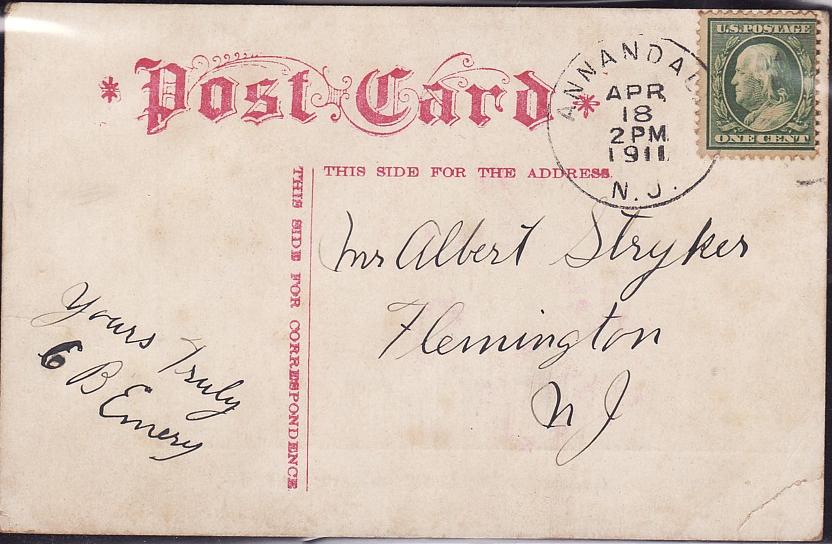 * Post Card *
U.S. POSTAGE
ONE CENT
ANNANDAL
APR
18
2 PM
1911
N.J.
THIS SIDE FOR THE ADDRESS.
THIS SIDE FOR CORRESPONDENCE.
Mr Albert Stryker
Flemington
N J
Yours Truly
E B Emery